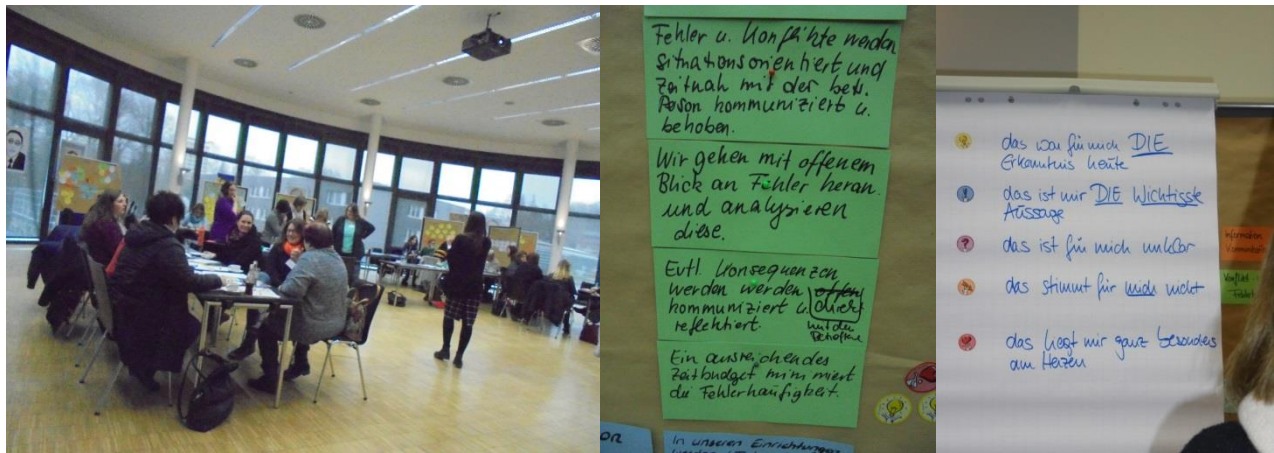 Fehler u. Konflikte werden
situationsorientiert und
zeitnah mit der betr.
Person kommuniziert u.
behoben.
Wir gehen mit offenem
Blick an Fehler heran
und analysieren
diese.
Evtl. Konsequenzen
werden werden offen
kommuniziert u. direkt
reflektiert. mit der
Ein ausreichendes
Zeitbudget minimiert
die Fehlerhäufigkeit.
In unseren Einrichtungen
das war für mich DIE
Erkenntnis heute
das ist mir DIE Wichtigste
Aussage
?
das ist für mich unklar
das stimmt für mich nicht
das liegt mir ganz besonders
am Herzen
Information